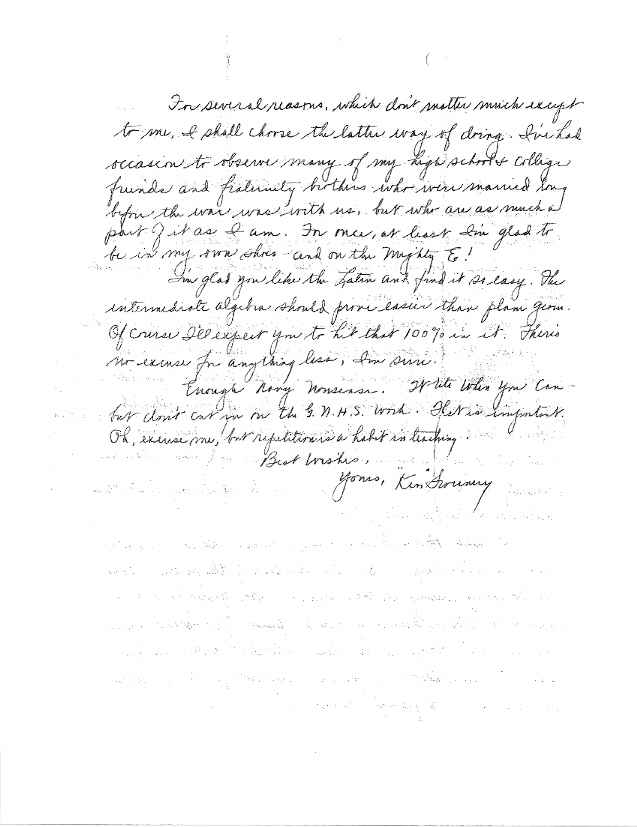 For several reasons, which don't matter much except
to me, I shall choose the latter way of doing. I've had
occasion to observe many of my high school & college
friends and fraternity brothers who were married long
before the war was with us, but who are as much a
part of it as I am. For once, at least I'm glad to
be in my own shoes - and on the Mighty E!
I'm glad you like the Latin and find it so easy. The
intermediate algebra should prove easier than plane geom.
Of course I'll expect you to hit that 100% in it. There's
no excuse for anything less, I'm sure.
Enough Navy nonsense. Write when you can -
but don't cut in on the G.N.H.S. work. That is important.
Oh, excuse me, but repetition is a habit in teaching.
Best Wishes,
Yours, "Ken"